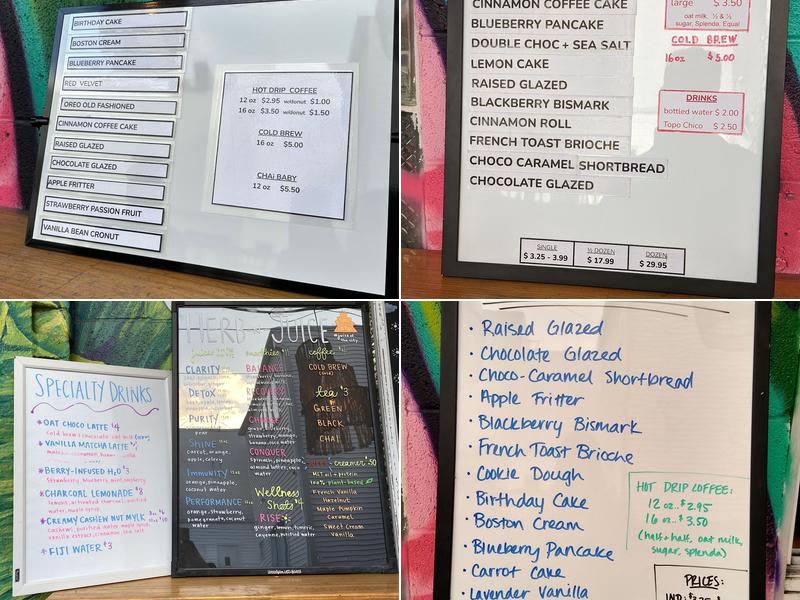 BIRTHDAY CAKE
BOSTON CREAM
BLUEBERRY PANCAKE
RED VELVET
OREO OLD FASHIONED
CINNAMON COFFEE CAKE
RAISED GLAZED
CHOCOLATE GLAZED
APPLE FRITTER
STRAWBERRY PASSION FRUIT
VANILLA BEAN CRONUT
HOT DRIP COFFEE
12 oz $2.95 w/donut $1.00
16 oz $3.50 w/donut $1.50
COLD BREW
16 oz $5.00
CHAi BABY
12 oz $5.50
CINNAMON COFFEE CAKE
BLUEBERRY PANCAKE
DOUBLE CHOC + SEA SALT
LEMON CAKE
RAISED GLAZED
BLACKBERRY BISMARK
CINNAMON ROLL
FRENCH TOAST BRIOCHE
CHOCO CARAMEL SHORTBREAD
CHOCOLATE GLAZED
large $3.50
oat milk, ½ & ½
sugar, Splenda, Equal
COLD BREW
16oz $5.00
DRINKS
bottled water $2.00
Topo Chico $2.50
SINGLE
$ 3.25 - 3.99
½ DOZEN
$ 17.99
DOZEN
$ 29.95
SPECIALTY DRINKS
*OAT CHOCO LATTE $4
cold brew, chocolate oat milk
*VANILLA MATCHA LATTE
*BERRY-INFUSED H2O $3
Strawberry, blueberry, mint, raspberry
*CHARCOAL LEMONADE $8
lemons, activated charcoal, purified
water, maple syrup
*CREAMY CASHEW NUT MYLK
cashews, purified water, maple syrup
vanilla extract, cinnamon, sea salt
*FIJI WATER $3
HERB N JUICE
juices
CLARITY
DETOX
PURITY
pear
SHINE
carrot, orange,
apple, celery
IMMUNITY
orange, pineapple,
coconut water
PERFORMANCE
orange, strawberry,
pomegranate, coconut
water
smoothies
BALANCE
RECOVERY
strawberry,
banana, coco water
CONQUER
spinach, pineapple,
almond butter, coco
water
Wellness
Shots $4
RISE
ginger, lemon, turmeric,
cayenne, purified water
coffee
COLD BREW
tea $3
GREEN
BLACK
CHAI
creamer $.50
MCT oil + protein
100% plant-based
French Vanilla
Hazelnut
Maple Pumpkin
Caramel
Sweet Cream
Vanilla
• Raised Glazed
• Chocolate Glazed
• Choco-Caramel Shortbread
• Apple Fritter
• Blackberry Bismark
• French Toast Brioche
• Cookie Dough
• Birthday Cake
• Boston Cream
• Blueberry Pancake
• Carrot Cake
• Lavender Vanilla
HOT DRIP COFFEE:
12 oz..$2.95
16 oz..$3.50
(half+half, oat milk,
sugar, splenda)
PRICES: